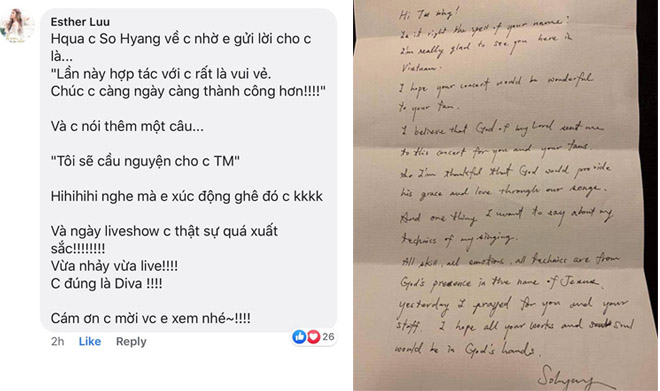 Esther Luu
Hqua c So Hyang về c nhờ e gửi lời cho c
là...
"Lần này hợp tác với c rất là vui vẻ.
Chúc c càng ngày càng thành công hơn!!!!"
Và c nói thêm một câu...
"Tôi sẽ cầu nguyện cho c TM"
Hihihihi nghe mà e xúc động ghê đó c kkkk
Và ngày liveshow c thật sự quá xuất
sắc!!!!!!!!
Vừa nhảy vừa live!!!!
C đúng là Diva !!!!
Cám ơn c mời vc e xem nhé~!!!!
2h Like Reply 26
Hi
Is it right the spell of your name?
I'm really glad to see you here in
Vietnam.
I hope your concert would be wonderful
to your fan.
I believe that God of my Lord sent me
to this concert for you and your fans.
So I'm thankful that God would provide
his grace and love through our songs.
And one thing I want to say about my
technics of my singing.
All skill, all emotions, all technics are from
God's presence in the name of Jesus.
yesterday I prayed for you and your
staff. I hope all your works and soul
would be in God's hands.
Sohyang